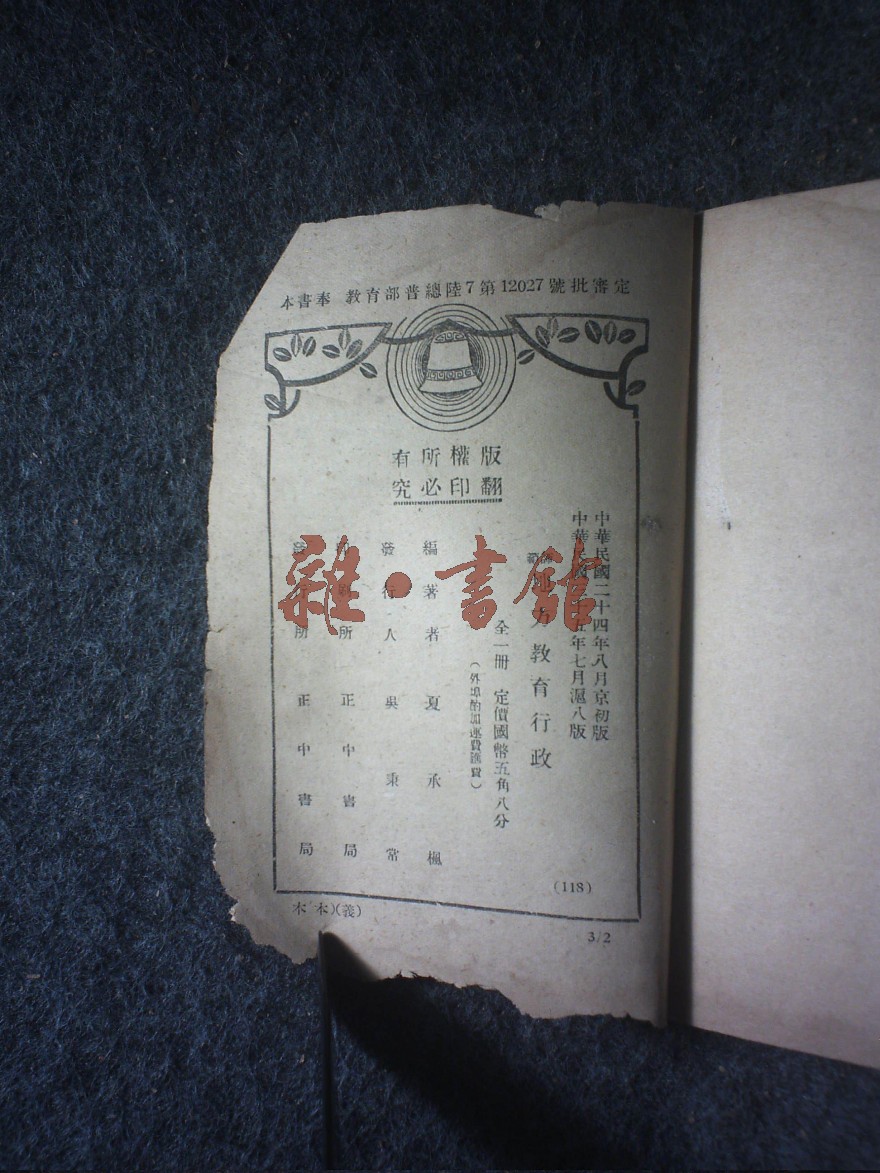 本書奉 教育部普總陸7第12027號批審定
版權所有
翻印必究
中華民國二十四年八月京初版
中華民國三十五年七月滬八版
地方教育行政
全一冊 定價國幣五角八分
（外埠酌加運費匯費）
編著者 夏承楓
發行人 吳秉常
印刷所 正中書局
發行所 正中書局
(118)
木 本)(義)
3/2
雜·書館